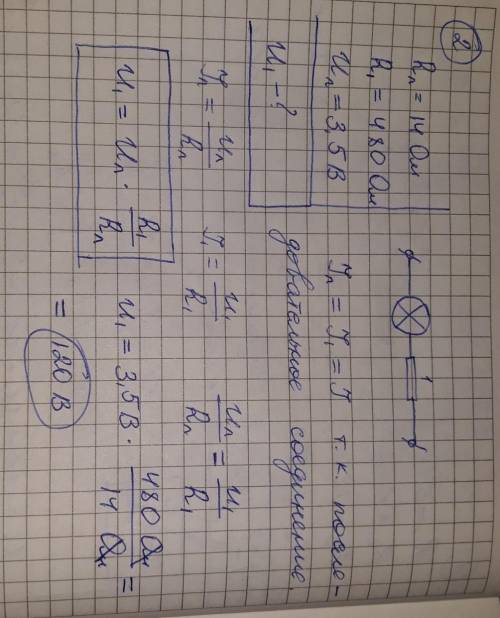 2
Rл = 14 Ом
R₁ = 480 Ом
Uл = 3,5 В
U₁ - ?
1
Iл = I₁ = I т. к. после-
довательное соединение.
Iл = Uл/Rл I₁ = U₁/R₁ Uл/Rл = U₁/R₁
U₁ = Uл · R₁/Rл U₁ = 3,5 В · 480 Ом/14 Ом =
= 120 В